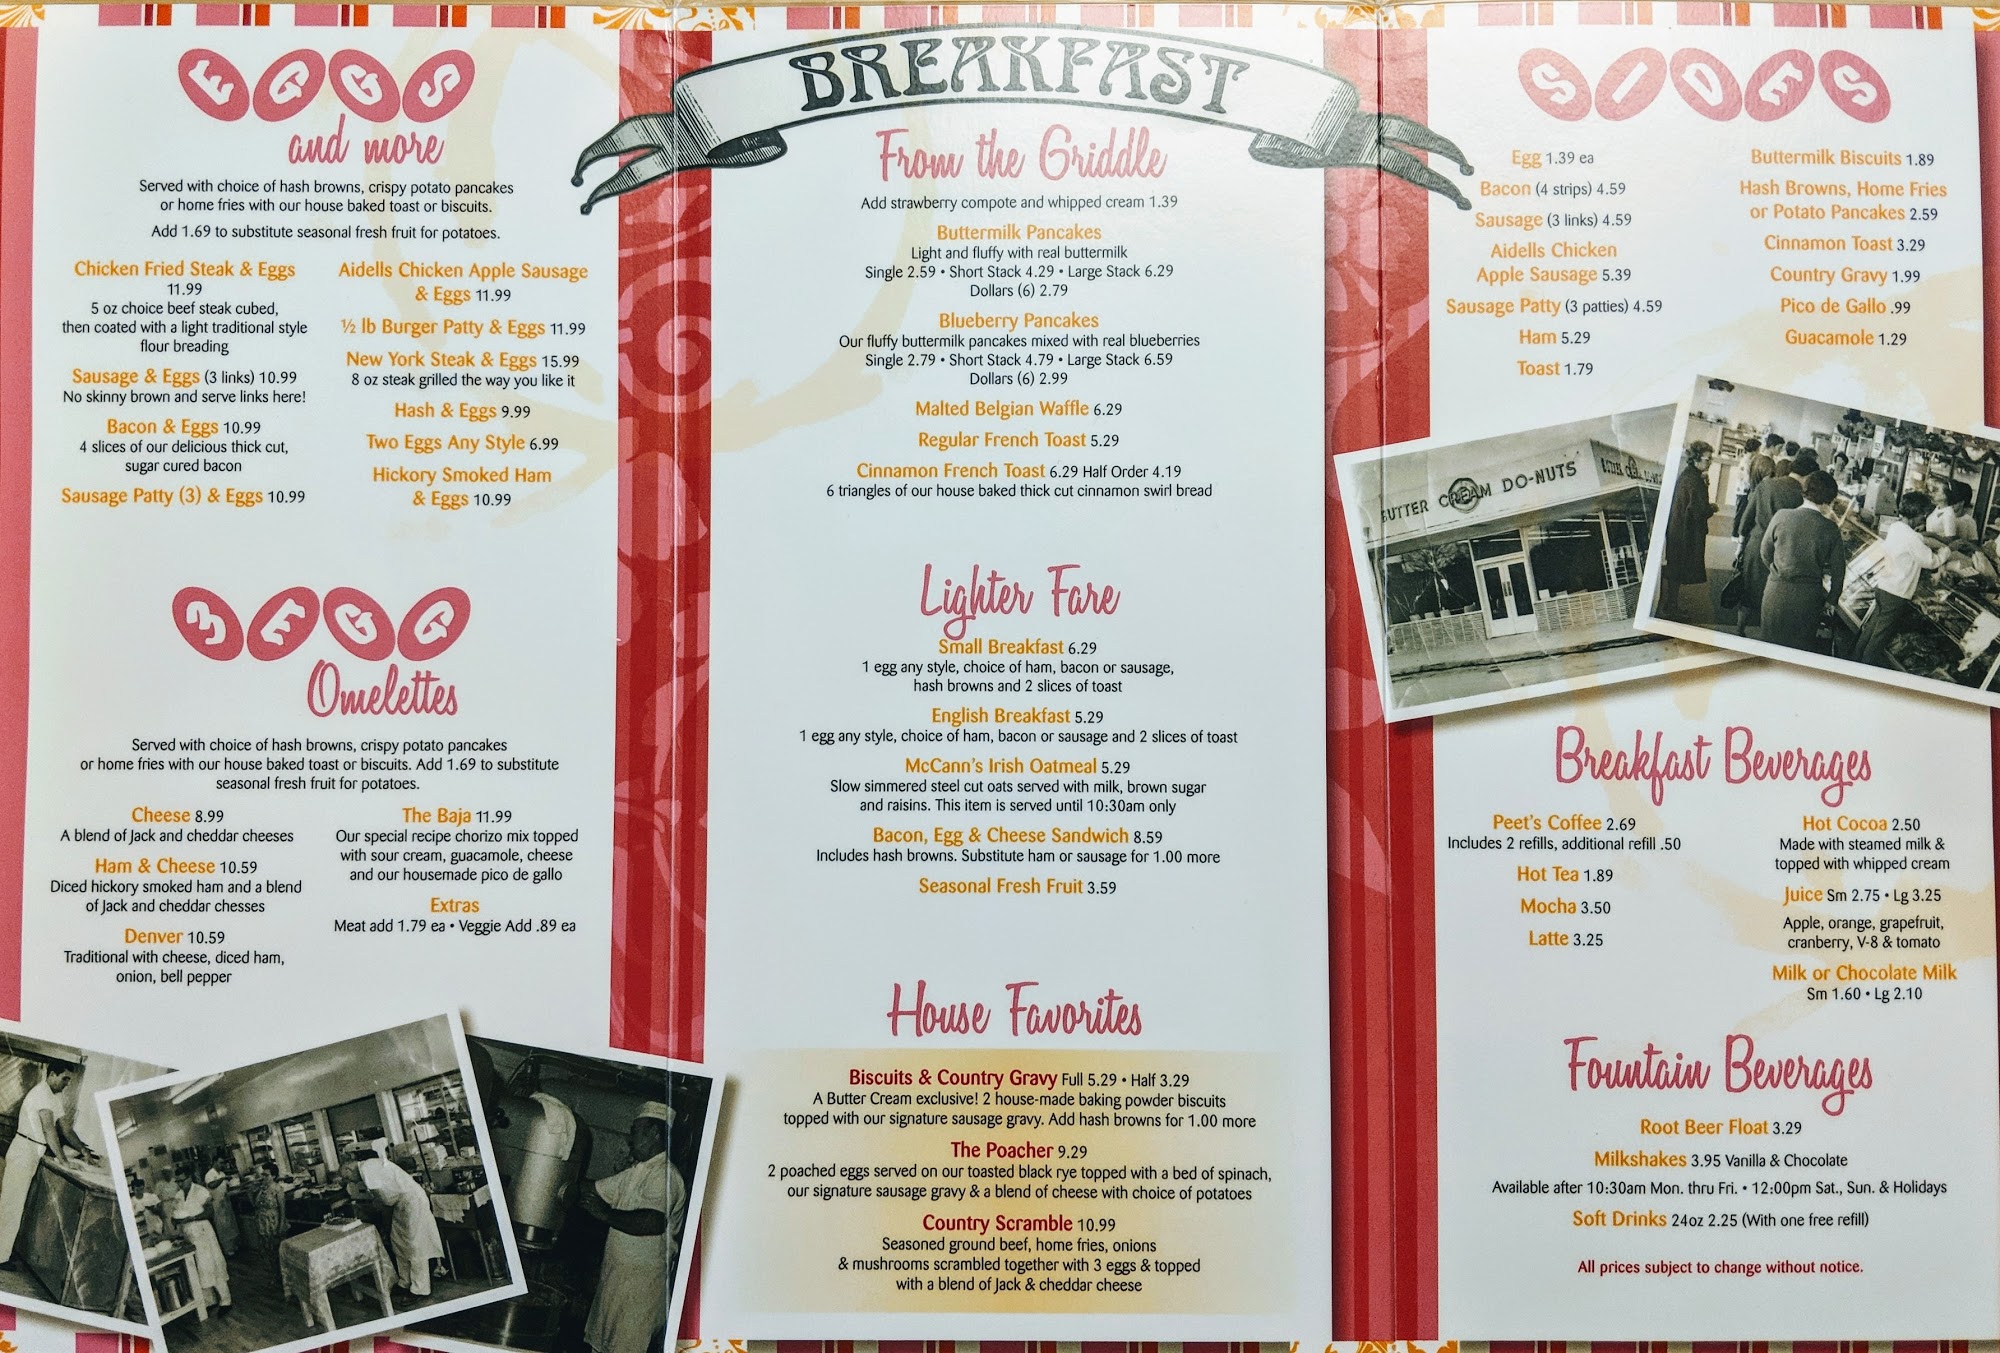 EGGS
and more
Served with choice of hash browns, crispy potato pancakes
or home fries with our house baked toast or biscuits.
Add 1.69 to substitute seasonal fresh fruit for potatoes.
Chicken Fried Steak & Eggs
11.99
5 oz choice beef steak cubed,
then coated with a light traditional style
flour breading
Sausage & Eggs (3 links) 10.99
No skinny brown and serve links here!
Bacon & Eggs 10.99
4 slices of our delicious thick cut,
sugar cured bacon
Sausage Patty (3) & Eggs 10.99
Aidells Chicken Apple Sausage
& Eggs 11.99
½ lb Burger Patty & Eggs 11.99
New York Steak & Eggs 15.99
8 oz steak grilled the way you like it
Hash & Eggs 9.99
Two Eggs Any Style 6.99
Hickory Smoked Ham
& Eggs 10.99
3 EGG
Omelettes
Served with choice of hash browns, crispy potato pancakes
or home fries with our house baked toast or biscuits. Add 1.69 to substitute
seasonal fresh fruit for potatoes.
Cheese 8.99
A blend of Jack and cheddar cheeses
Ham & Cheese 10.59
Diced hickory smoked ham and a blend
of Jack and cheddar chesses
Denver 10.59
Traditional with cheese, diced ham,
onion, bell pepper
The Baja 11.99
Our special recipe chorizo mix topped
with sour cream, guacamole, cheese
and our housemade pico de gallo
Extras
Meat add 1.79 ea • Veggie Add .89 ea
BREAKFAST
From the Griddle
Add strawberry compote and whipped cream 1.39
Buttermilk Pancakes
Light and fluffy with real buttermilk
Single 2.59 • Short Stack 4.29 • Large Stack 6.29
Dollars (6) 2.79
Blueberry Pancakes
Our fluffy buttermilk pancakes mixed with real blueberries
Single 2.79 • Short Stack 4.79 • Large Stack 6.59
Dollars (6) 2.99
Malted Belgian Waffle 6.29
Regular French Toast 5.29
Cinnamon French Toast 6.29 Half Order 4.19
6 triangles of our house baked thick cut cinnamon swirl bread
Lighter Fare
Small Breakfast 6.29
1 egg any style, choice of ham, bacon or sausage,
hash browns and 2 slices of toast
English Breakfast 5.29
1 egg any style, choice of ham, bacon or sausage and 2 slices of toast
McCann's Irish Oatmeal 5.29
Slow simmered steel cut oats served with milk, brown sugar
and raisins. This item is served until 10:30am only
Bacon, Egg & Cheese Sandwich 8.59
Includes hash browns. Substitute ham or sausage for 1.00 more
Seasonal Fresh Fruit 3.59
House Favorites
Biscuits & Country Gravy Full 5.29 • Half 3.29
A Butter Cream exclusive! 2 house-made baking powder biscuits
topped with our signature sausage gravy. Add hash browns for 1.00 more
The Poacher 9.29
2 poached eggs served on our toasted black rye topped with a bed of spinach,
our signature sausage gravy & a blend of cheese with choice of potatoes
Country Scramble 10.99
Seasoned ground beef, home fries, onions
& mushrooms scrambled together with 3 eggs & topped
with a blend of Jack & cheddar cheese
SIDES
Egg 1.39 ea
Bacon (4 strips) 4.59
Sausage (3 links) 4.59
Aidells Chicken
Apple Sausage 5.39
Sausage Patty (3 patties) 4.59
Ham 5.29
Toast 1.79
Buttermilk Biscuits 1.89
Hash Browns, Home Fries
or Potato Pancakes 2.59
Cinnamon Toast 3.29
Country Gravy 1.99
Pico de Gallo .99
Guacamole 1.29
BUTTER CREAM DO-NUTS
Breakfast Beverages
Peet's Coffee 2.69
Includes 2 refills, additional refill .50
Hot Tea 1.89
Mocha 3.50
Latte 3.25
Hot Cocoa 2.50
Made with steamed milk &
topped with whipped cream
Juice Sm 2.75 • Lg 3.25
Apple, orange, grapefruit,
cranberry, V-8 & tomato
Milk or Chocolate Milk
Sm 1.60 • Lg 2.10
Fountain Beverages
Root Beer Float 3.29
Milkshakes 3.95 Vanilla & Chocolate
Available after 10:30am Mon. thru Fri. • 12:00pm Sat., Sun. & Holidays
Soft Drinks 24oz 2.25 (With one free refill)
All prices subject to change without notice.